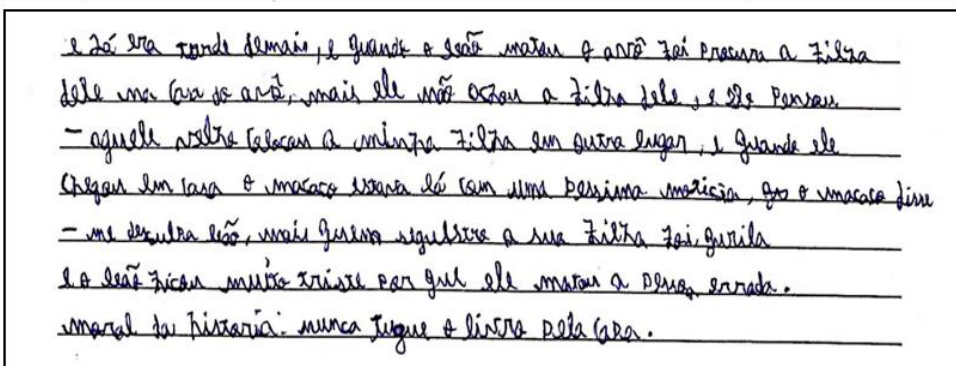 e já era tarde demais, e quando o leão matou o avô foi procura a filha
dele na casa do avô, mais ele não achou a filha dele, e ele pensou
- aquele velho colocou a minha filha em outro lugar, e quando ele
chegou em casa o macaco estava lá com uma pessima noticia, o macaco disse
- me desculpa leão, mais quem sequestro a sua filha foi gurila
e o leão ficou muito triste por que ele matou a pessoa errada.
moral da historia: nunca jugue o livro pela capa.